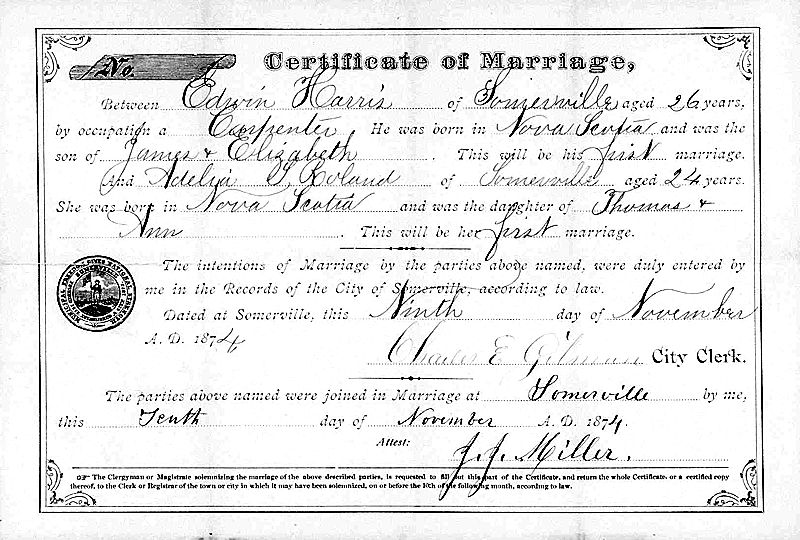 No. Certificate of Marriage,
Between Edwin Harris of Somerville aged 26 years,
by occupation a Carpenter He was born in Nova Scotia and was the
son of James & Elizabeth . This will be his first marriage.
And Adelia S. Boland of Somerville aged 24 years.
She was born in Nova Scotia and was the daughter of Thomas &
Ann . This will be her first marriage.
The intentions of Marriage by the parties above named, were duly entered by
me in the Records of the City of Somerville, according to law.
Dated at Somerville, this Ninth day of November
A. D. 1874
Charles E. Gilman City Clerk.
The parties above named were joined in Marriage at Somerville by me,
this Tenth day of November A. D. 1874.
Attest: J. J. Miller.
The Clergyman or Magistrate solemnizing the marriage of the above described parties, is requested to fill out this part of the Certificate, and return the whole Certificate, or a certified copy
thereof, to the Clerk or Registrar of the town or city in which it may have been solemnized, on or before the 10th of the following month, according to law.